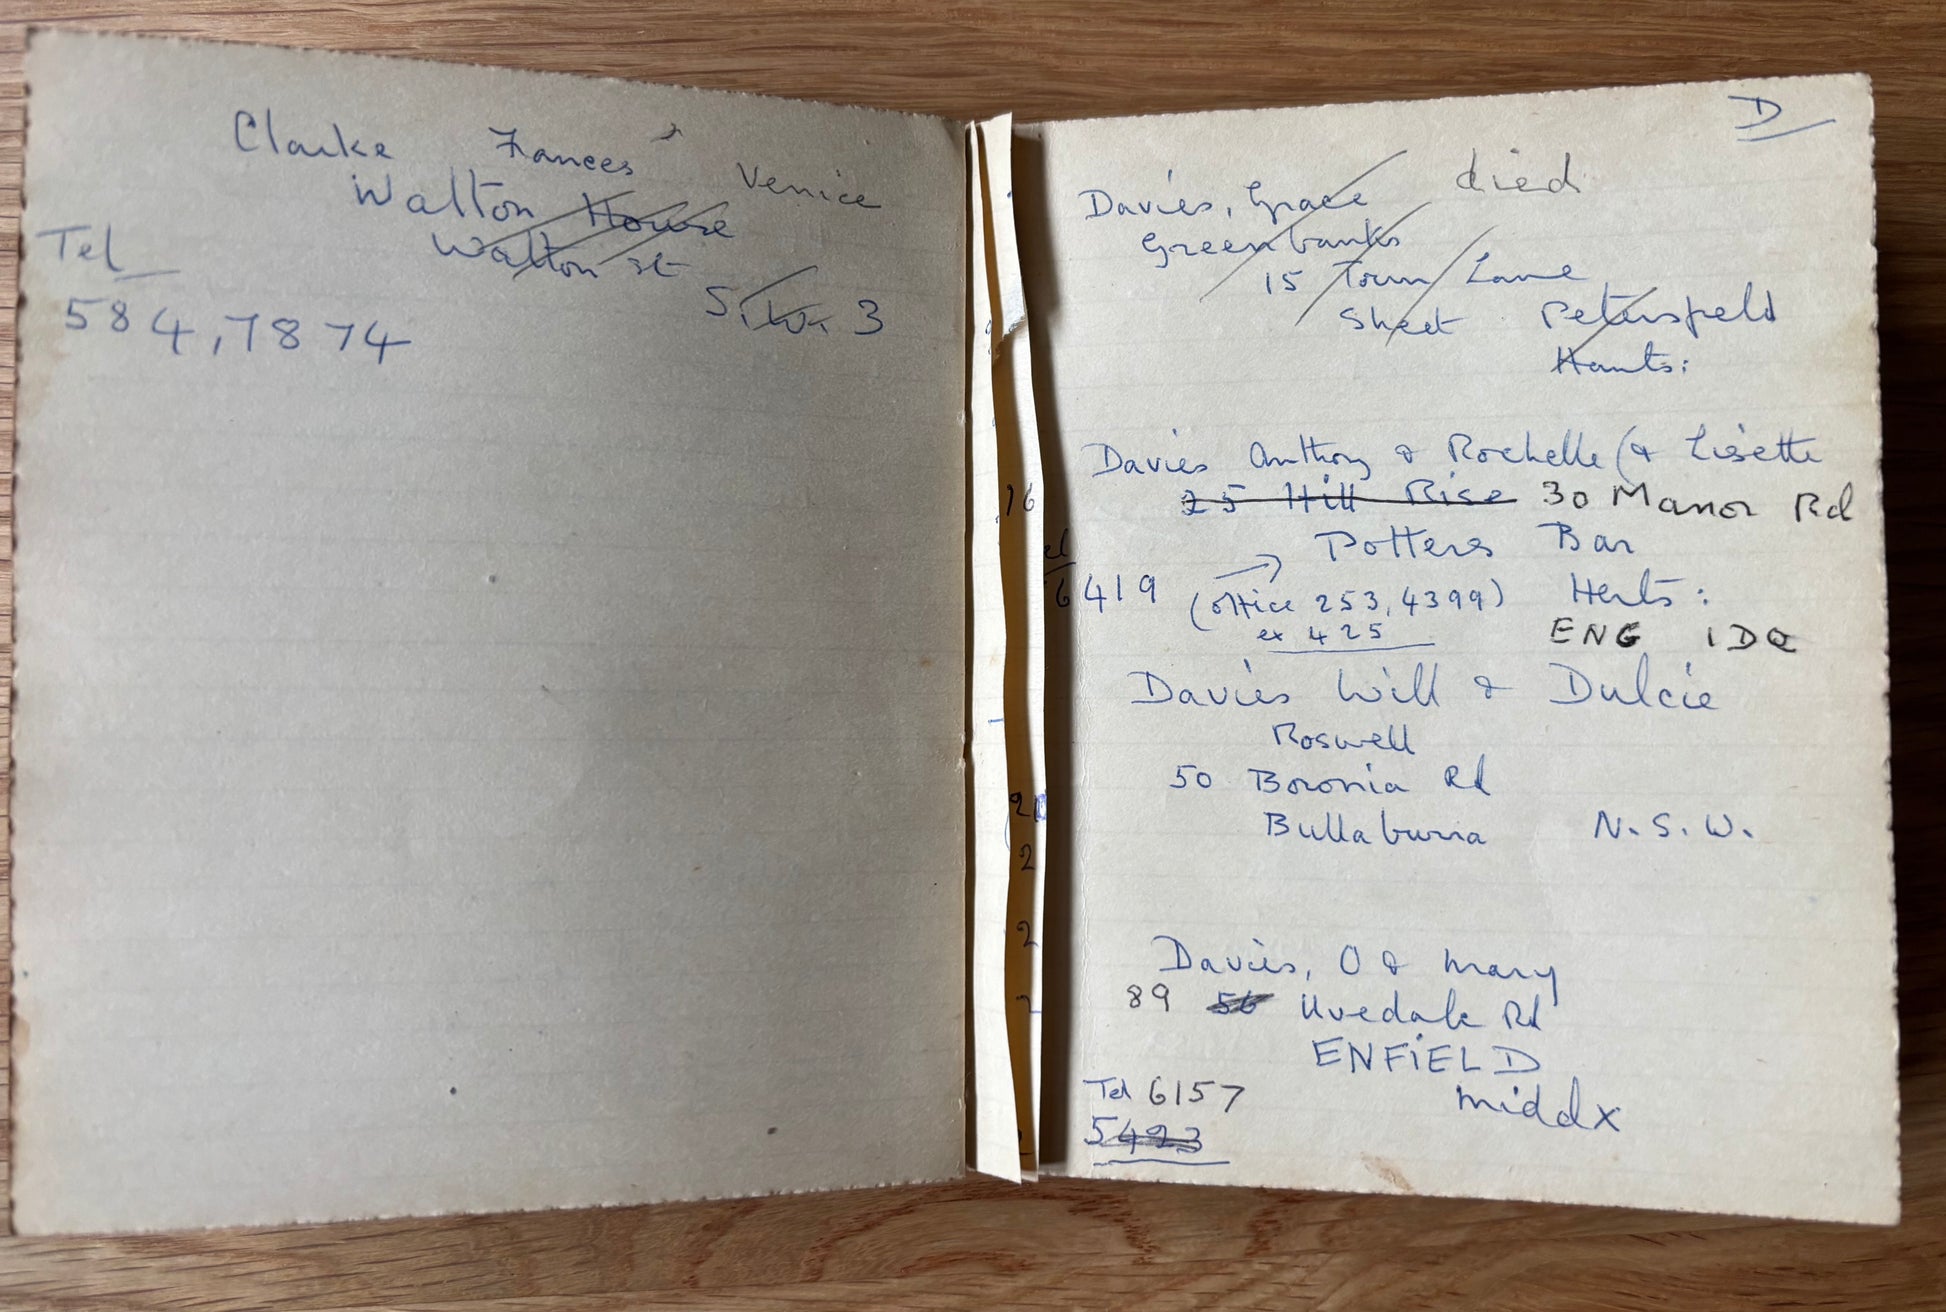 Clarke Frances Venice
Walton House
Walton St
S.W. 3
Tel
584,7874
16
el
2
2
2
D
Davies, Grace died
Greenbanks
15 Town Lane
Sheet Petersfield
Hants:
Davies Anthony & Rochelle (& Lisette
25 Hill Rise 30 Manor Rd
Potters Bar
6419 (office 253,4399) Herts:
ex 425 ENG 1DQ
Davies Will & Dulcie
Roswell
50 Boronia Rd
Bullaburra N.S.W.
Davies, O & Mary
89 56 Uvedale Rd
ENFiELD
Tel 6157 Middx
5423